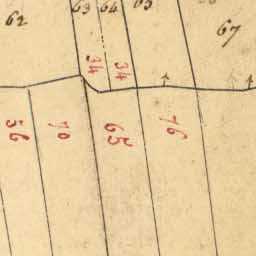 62
63
64
65
67
34
34
56
70
65
76